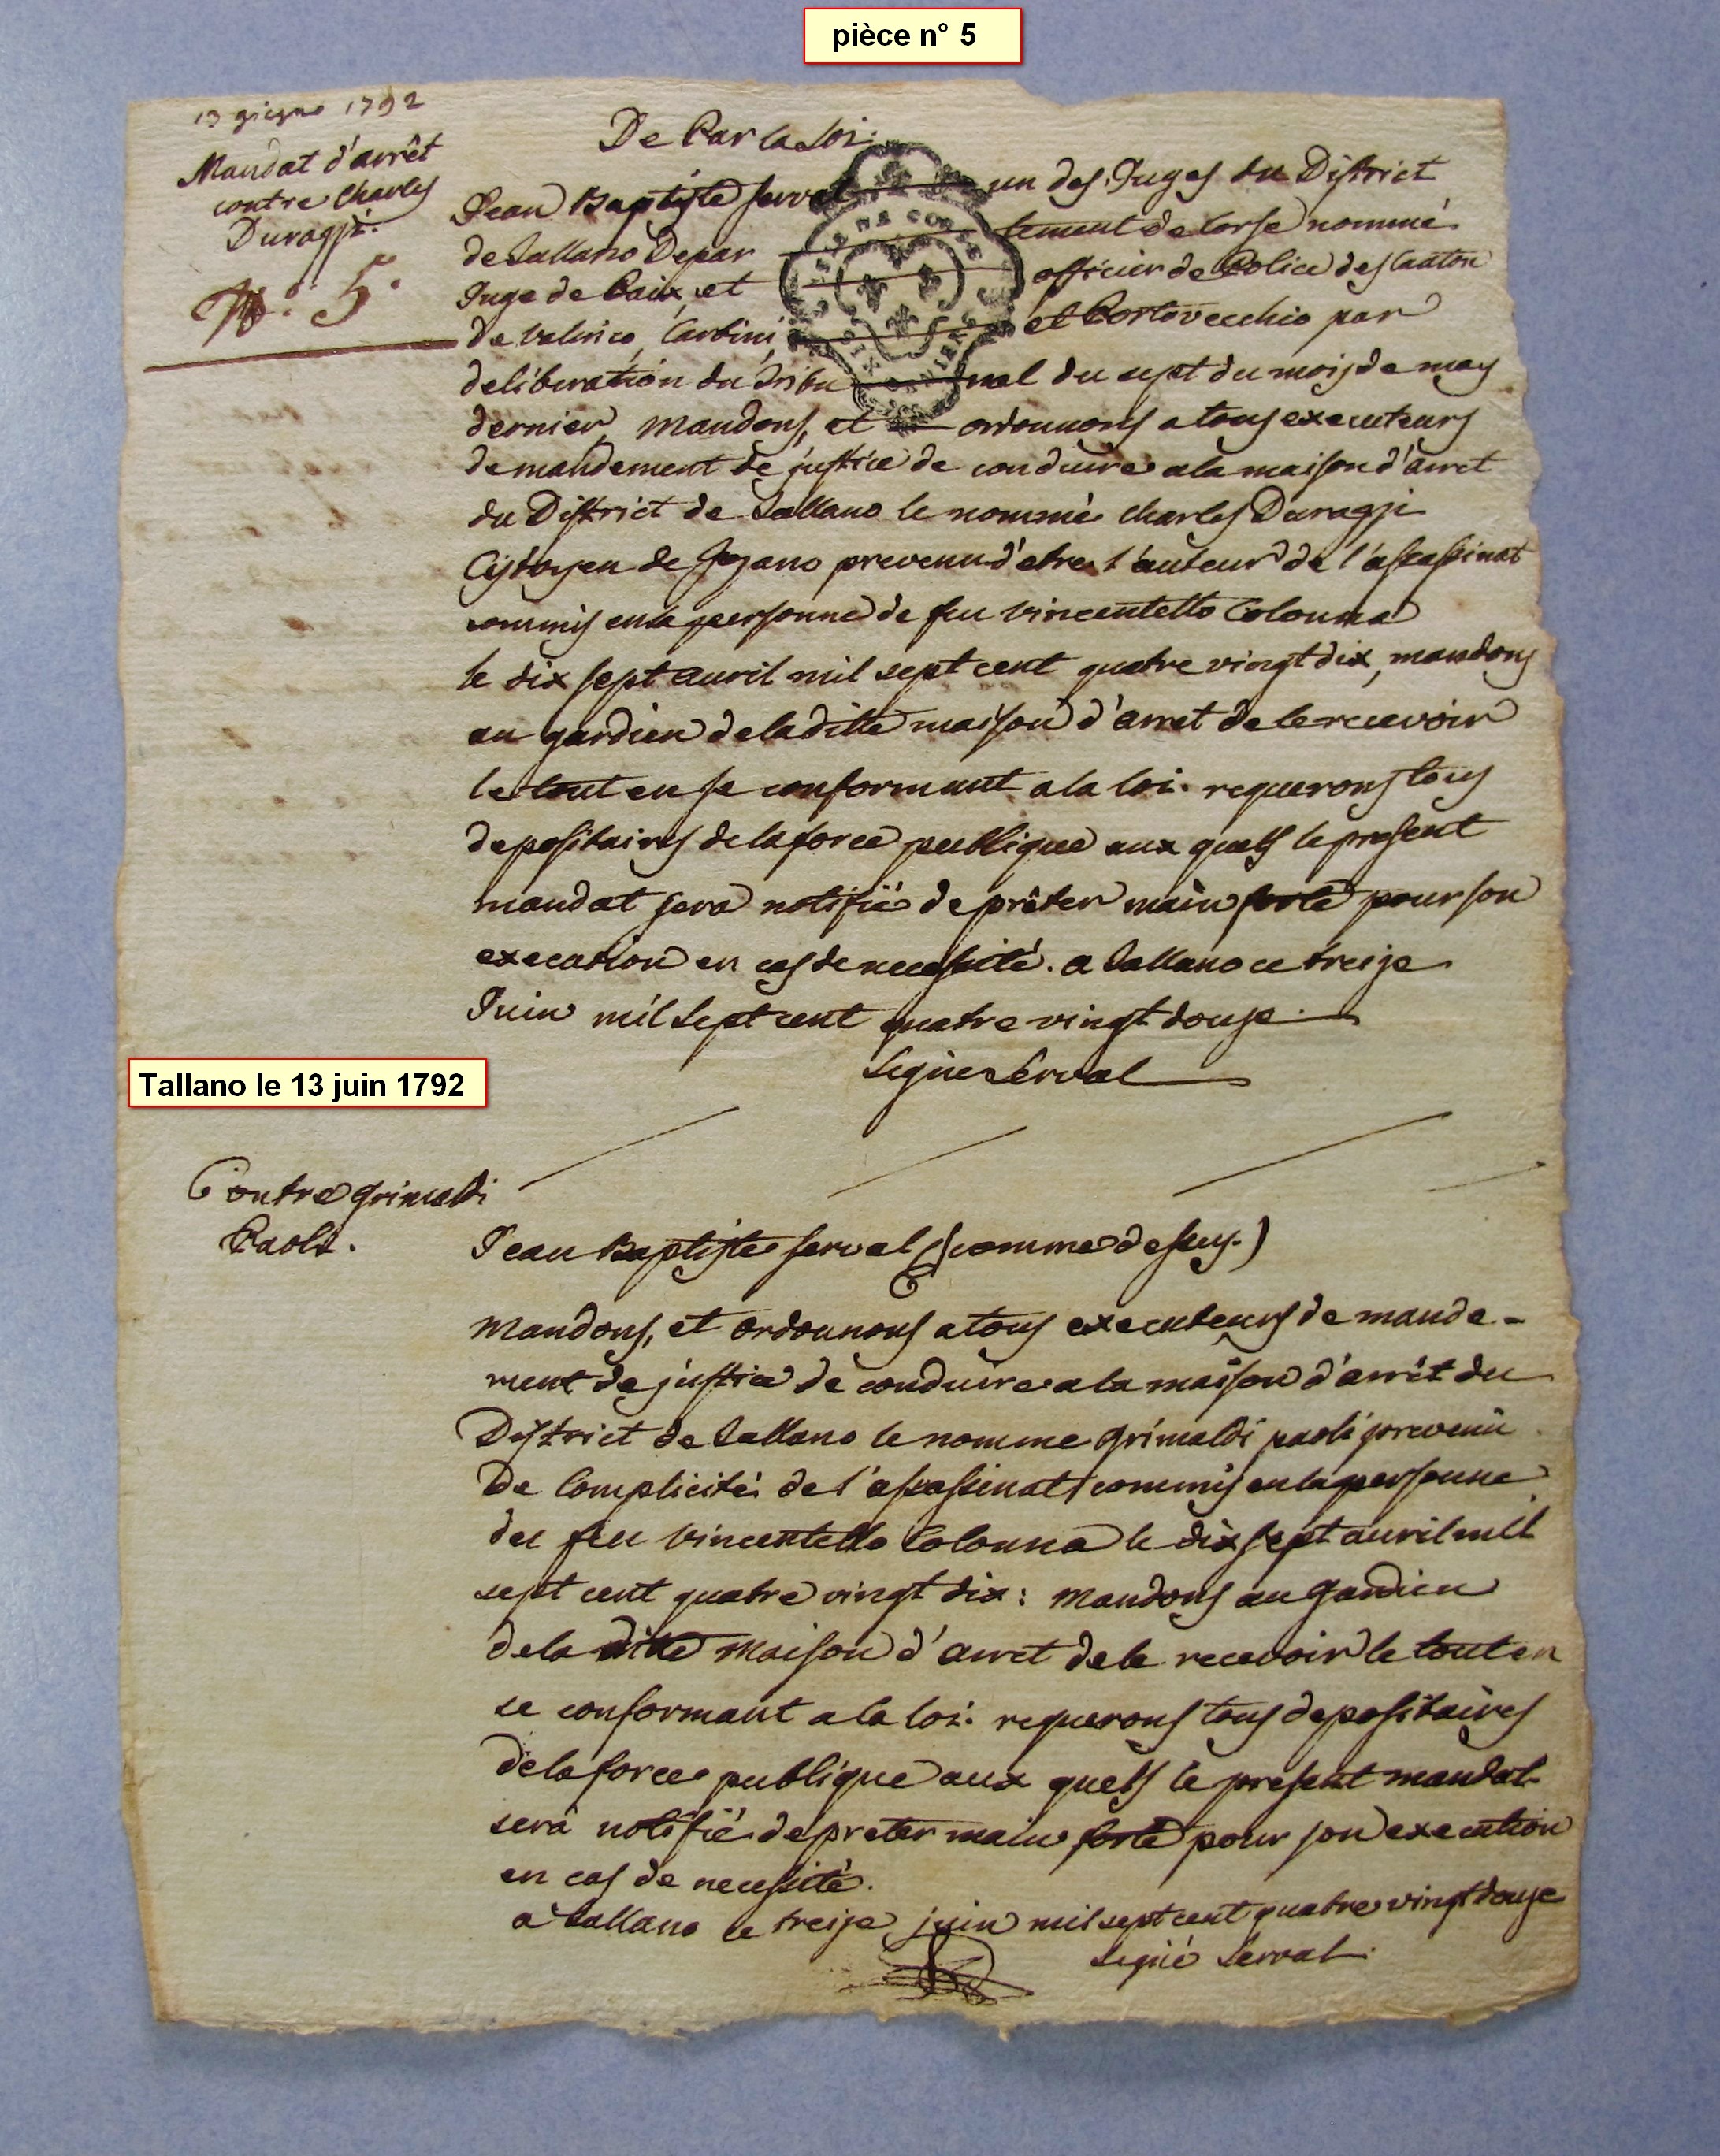 pièce n° 5
13 giugno 1792
Mandat d'arrêt
contre Charles
Duragji.
N.° 5.
De Par la Loi.
Jean Baptiste Serval un des Juges du District
de Tallano Depar tement de Corse nommé
Juge de Paix, et officier de Police des Canton
de Valinco, Carbini et Portovecchio par
deliberation du Tribu nal du sept du mois de may
dernier, mandons, et ordonnons a tous executeurs
de mandement de justice de conduire a la maison d'arret
du District de Tallano le nommé Charles Duragji
Citoyen de prevenu d'etre l'auteur de l'assassinat
commis en la personne de feu Vincentello Colonna
le dix sept avril mil sept cent quatre vingt dix, mandons
au gardien de la ditte maison d'arret de le recevoir
le tout en se conformant a la loi. requerons tous
depositaires de la force publique aux quels le present
mandat sera notifié de prêter main forte pour son
execution en cas de necessité. a Tallano ce treize
Juin mil sept cent quatre vingt douze.
Signé Serval
Tallano le 13 juin 1792
Contre Grimaldi
Paoli.
Jean Baptiste Serval (comme dessus.)
Mandons, et ordonnons a tous executeurs de mande-
ment de justice de conduire a la maison d'arrêt du
District de Tallano le nomme Grimaldi paoli prevenu
De Complicité de l'assassinat commis en la personne
du feu Vincentello Colonna le dix sept avril mil
sept cent quatre vingt dix : Mandons au Gardien
de la ditte Maison d'arret de le recevoir le tout en
se conformant a la loi. requerons tous depositaires
de la force publique aux quels le present mandat
sera notifié de preter main forte pour son execution
en cas de necessité.
a Tallano le treize juin mil sept cent quatre vingt douze
Signé Serval.